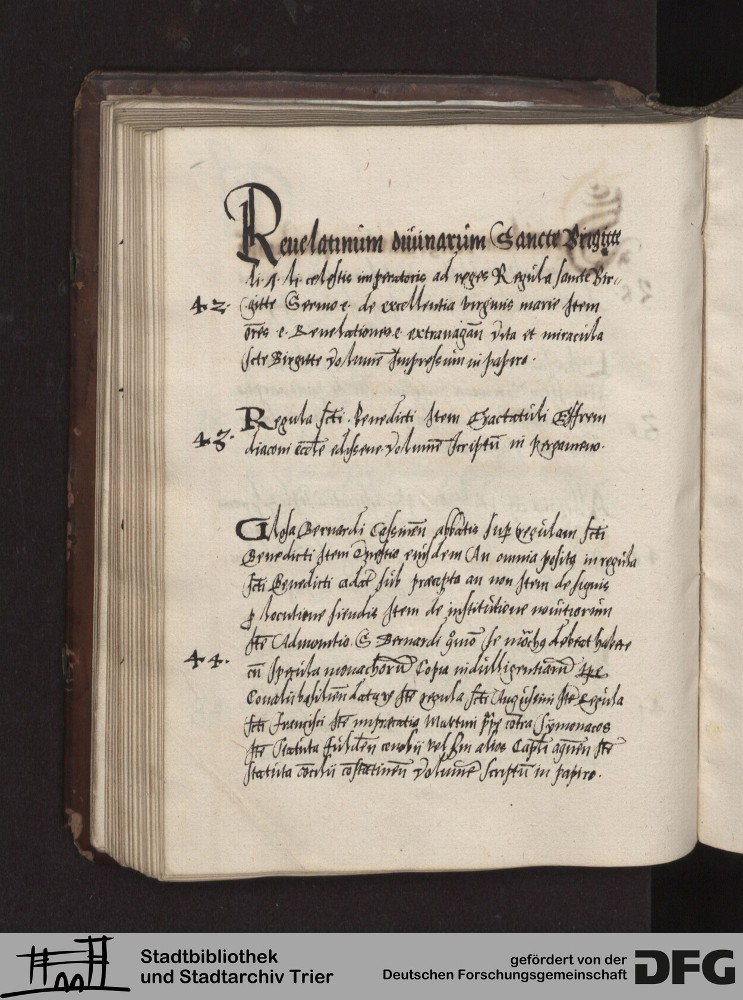 Reuelationum diuinarum Sancte Birgitte
li. 8. li. celestis imperatoris ad reges Regula sancte Bir-
42. gitte Sermo e. de excellentia virginis marie Item
orōes e. Reuelationes e. extrauagan̄ Vita et miracula
scte Birgitte Volumē Impressum in papiro.
43. Regula scti. Benedicti Item Tractatuli Effrem
diaconi eccle edissene Volumē scriptū in pergameno.
Glosa Bernardi Cassinen̄ abbatis sup regulam scti
Benedicti Item Questio eiusdem An omnia posita in regula
scti Benedicti cadāt sub præcepto an non Item de signis
p locutione fiendis Item de institutione nouitiorum
Itē Admonitio S Bernardi quō se mōchq debeat habere
44. cū specula monachorū Copia indulligentiarū tpe
Concilii basilien̄ datarū Itē regula scti Augustini Itē Regula
scti Francisci Itē imprecatio Martini ppe cōtra Symonacos
Itē Statuta Fulden̄ cenobii vel scdm alios Capli Itē
Statuta cōcilii cōstātinen̄ Volumē scriptū in papiro.
Stadtbibliothek
und Stadtarchiv Trier
gefördert von der
Deutschen Forschungsgemeinschaft
DFG